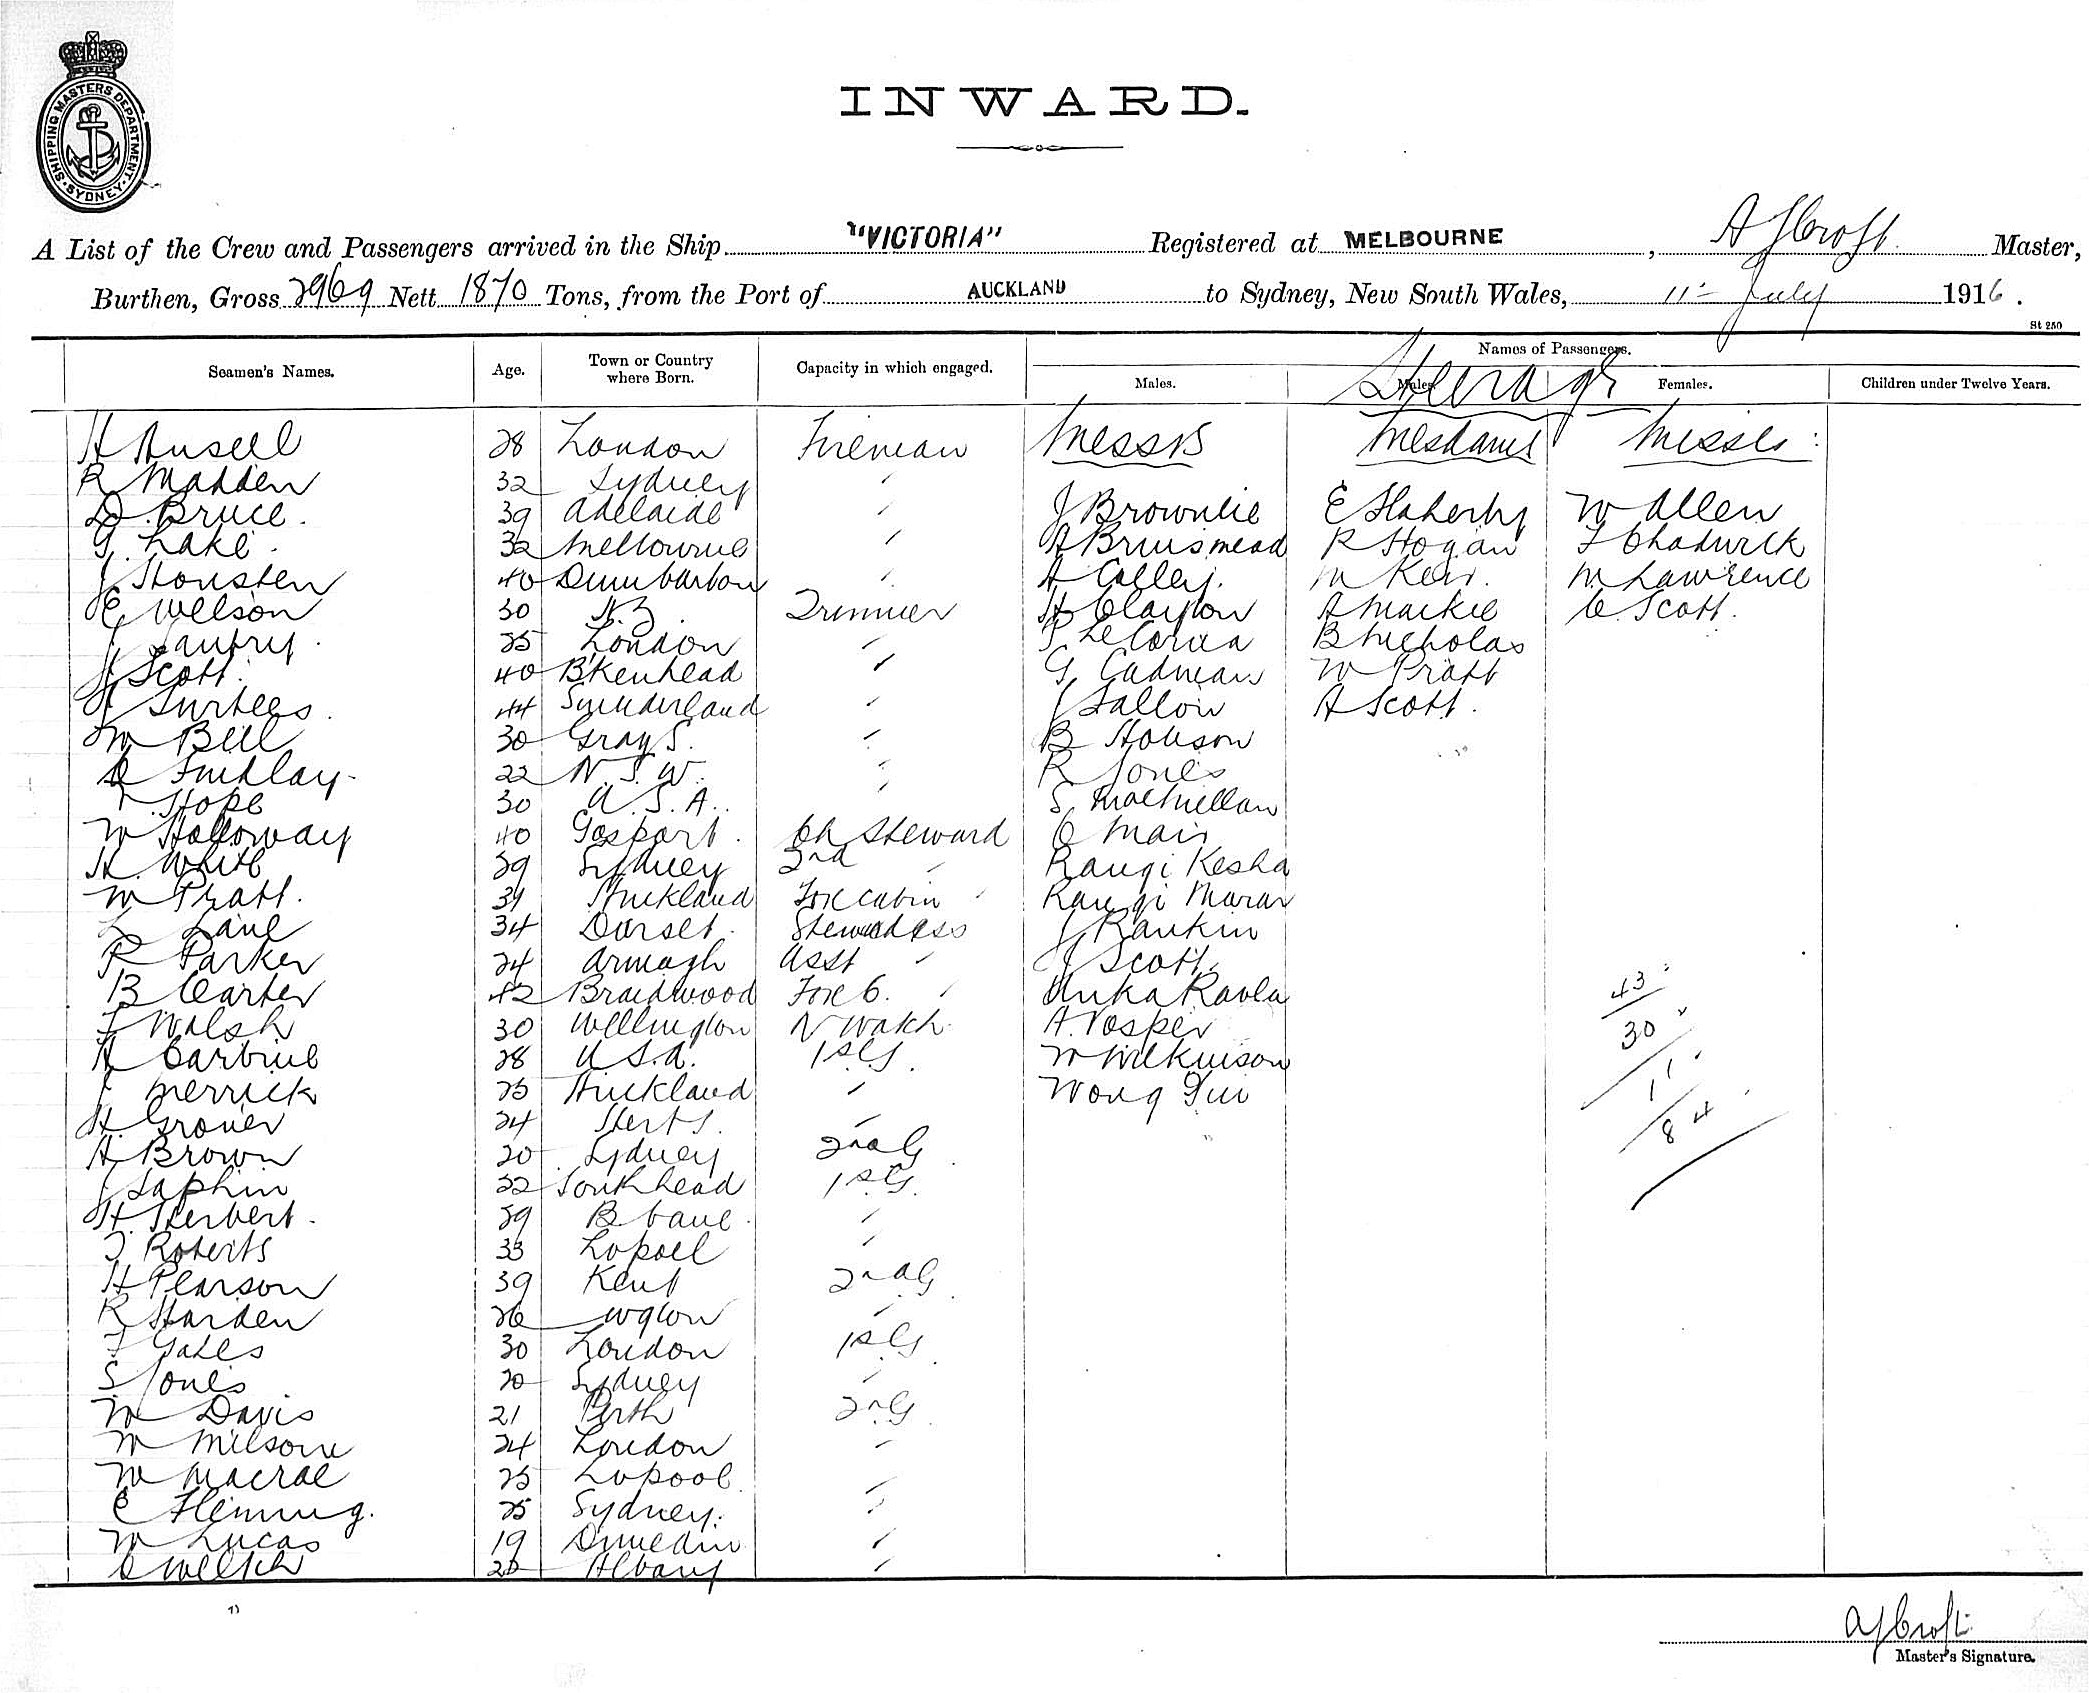 SHIPPING MASTERS DEPARTMENT. SYDNEY
INWARD.
A List of the Crew and Passengers arrived in the Ship "VICTORIA" Registered at MELBOURNE, A J Croft Master,
Burthen, Gross 2969 Nett 1870 Tons, from the Port of AUCKLAND to Sydney, New South Wales, 11th July 1916.
St 250
Names of Passengers.
Seamen's Names. Age. Town or Country where Born. Capacity in which engaged. Males. Males. Females. Children under Twelve Years.
Steerage
H Ansell 28 London Fireman Messrs Mesdames Misses :
R Madden 32 Sydney "
D. Bruce. 39 Adelaide " J Brownlie E Flaherty W Allen
G. Lake. 32 Melbourne " A Bruismead R Hogan F Chadwick
J Housten 40 Dumbarton " A Colley. M Kerr. M Lawrence
E Wilson 30 N.Z. Trimmer H Clayton A Mackie C. Scott.
J 25 London " B Nicholas
J Scott. 40 B'kenhead " G Cadman W Pratt
J Surtees. 44 Sunderland " J Fallow A Scott.
W Bell 30 Grays. " B Hobson
A Findlay. 22 N.S.W. " R Jones
Hope 30 U.S.A. " S MacMillan
W Holloway 40 Gosport. Ch Steward C Mair
H. White 29 Sydney 2nd " Rangi Kesha
W Pratt. 31 Auckland Fore cabin " Rangi Marar
L Lane 34 Dorset. Stewardess J Rankin
R Parker 24 Armagh Asst " J Scott.
B Carter 42 Braidwood Fore C. " Unka Ravla
F Walsh 30 Wellington N Watch. A. Vosper
H Carbine 28 U.S.A. 1st S. W Wilkinson
J Merrick 25 Auckland " Wong
H. Grover 24 Herts. "
H Brown 20 Sydney 2nd S.
J Saphin 22 Southhead 1st S.
H. Herbert. 29 B bane. "
T Roberts 33 Lopoel "
H Pearson 39 Kent 2nd S.
R Harden 26 Wgton "
F Gates 30 London 1st S.
S Jones 20 Sydney "
W Davis 21 Perth 2nd S.
W Milsom 24 London "
W Macrae 25 Lopool "
E Fleming. 25 Sydney. "
W Lucas 19 Dunedin "
22 Albany "
43
30
11
84
A J Croft
Master's Signature.